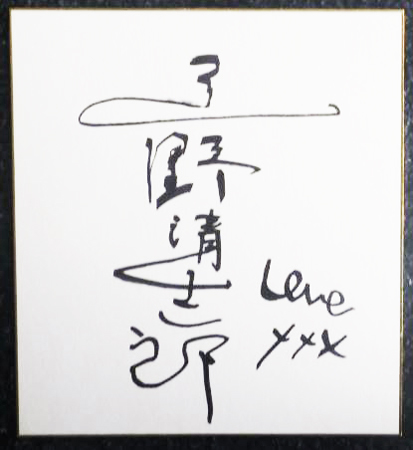 忌野清志郎
Love
xxx